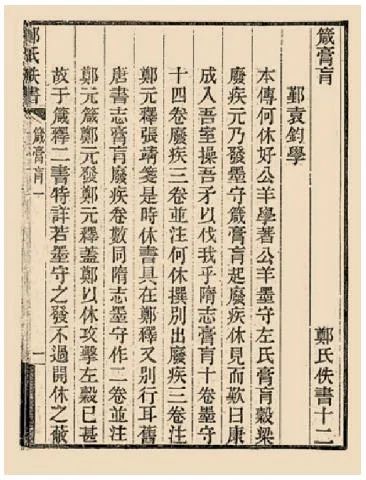 箴膏肓　鄭氏佚書十二
鄞袁鈞學
本傳何休好公羊學著公羊墨守左氏膏肓穀梁
廢疾元乃發墨守箴膏肓起廢疾休見而歎曰康
成入吾室操吾矛以伐我乎隋志膏肓十卷墨守
十四卷廢疾三卷並注何休撰別出廢疾三卷注
鄭元釋張靖箋是時休書具在鄭釋又別行耳舊
唐書志膏肓廢疾卷數同隋志墨守作二卷並注
鄭元箴鄭元發鄭元釋蓋鄭以休攻擊左穀已甚
故于箴釋二書特詳若墨守之發不過開休之蔽
鄭氏佚書　箴膏肓一　一